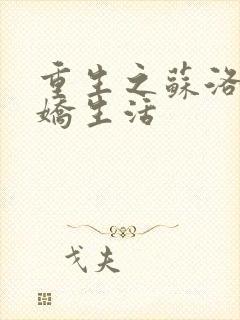 重生之蘇洛
嬌生活
戈夫